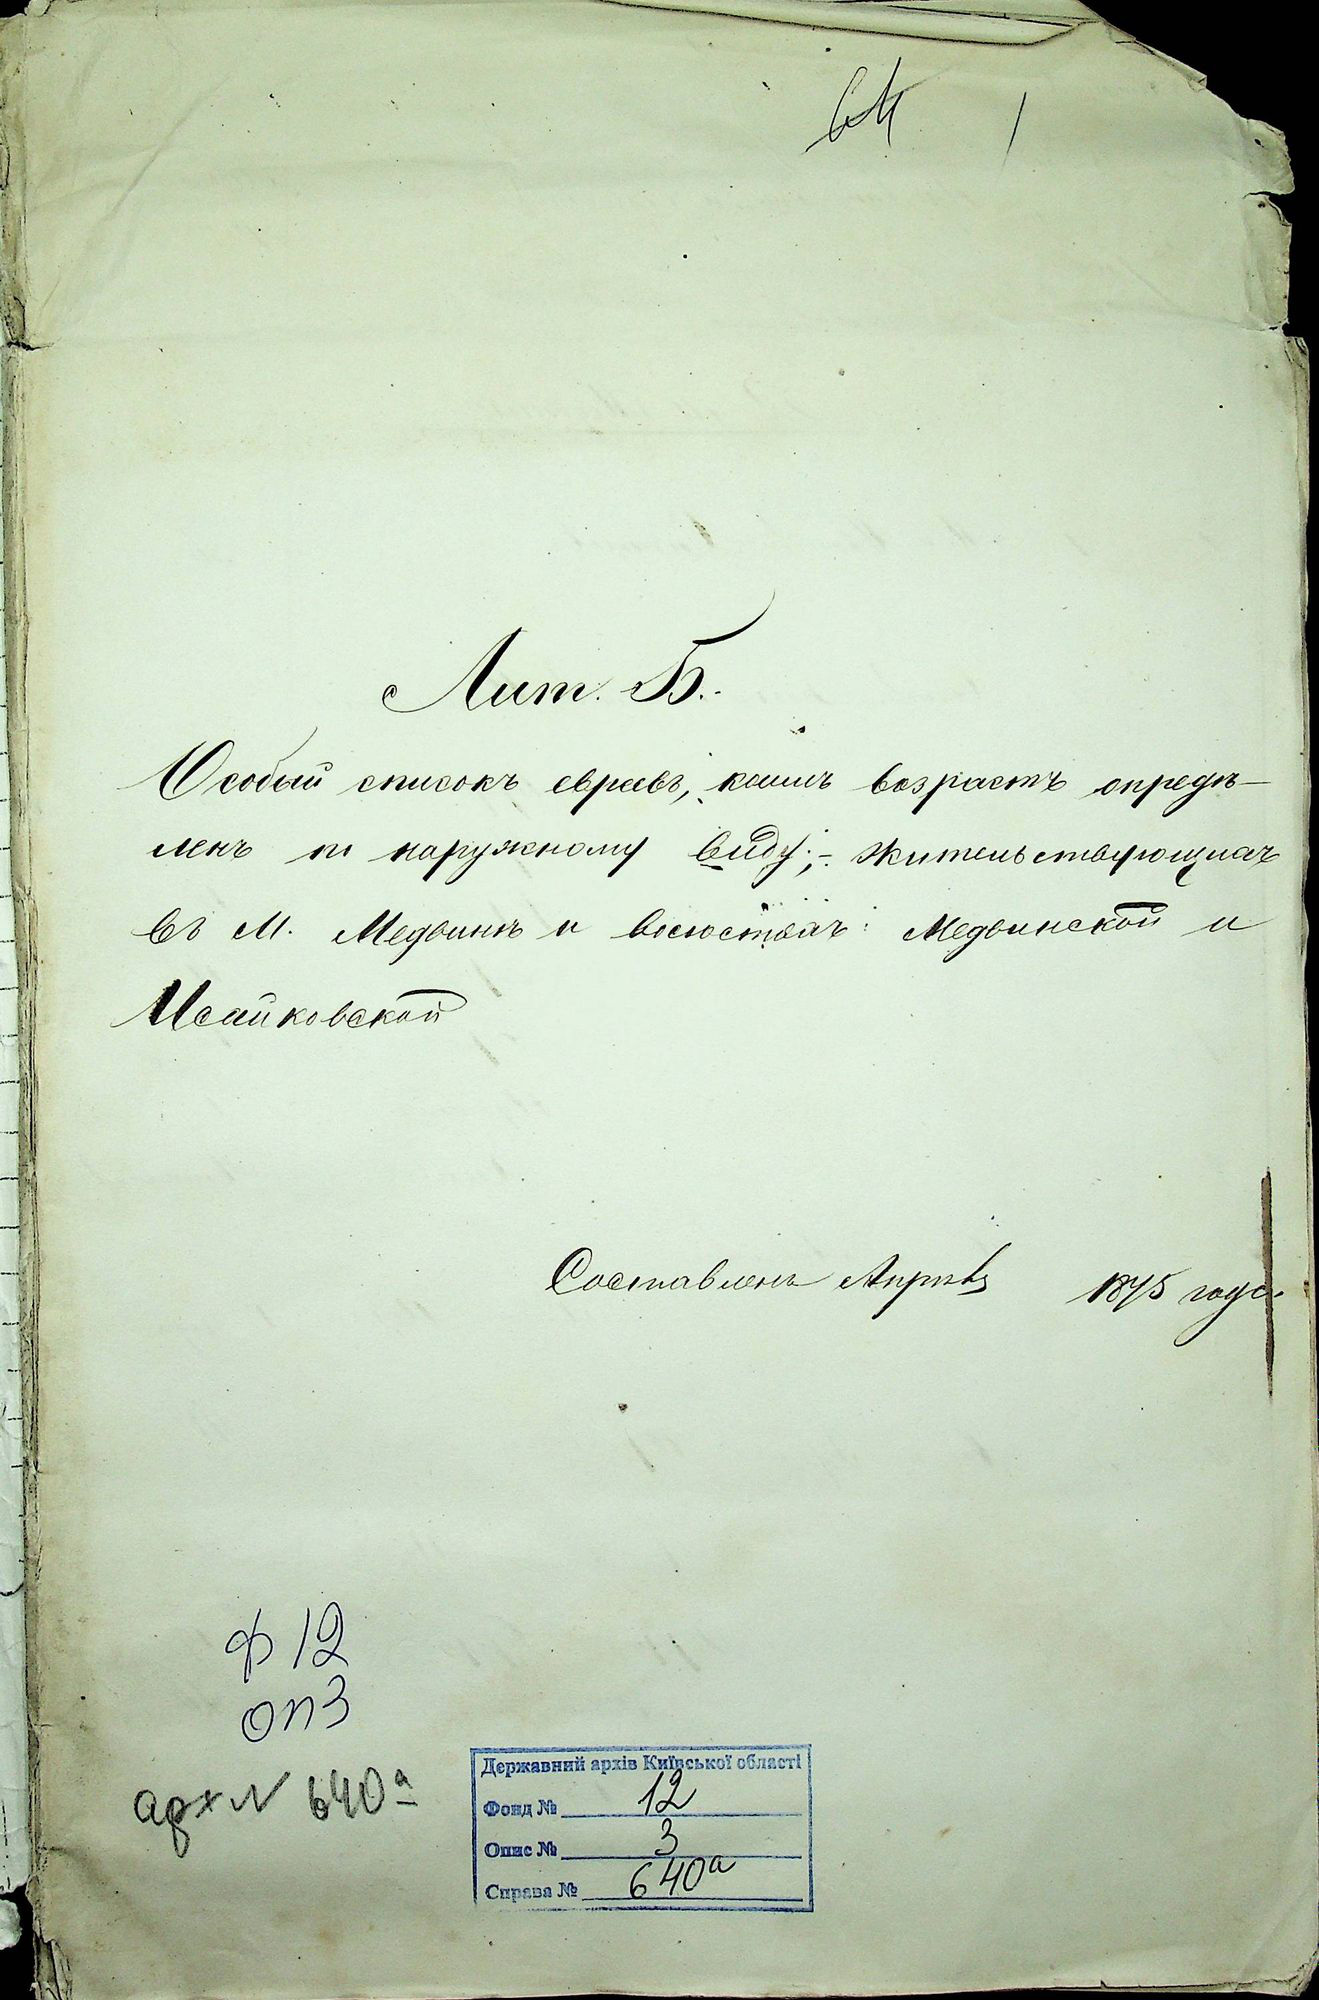 1
Лит. Б.
Особый списокъ евреевъ, коимъ возрастъ опредѣ-
ленъ по наружному виду;- жительствующихъ
въ М. Медвинѣ и волостяхъ: Медвинской и
Исайковской
Составленъ Апрѣля 1875 года.
Ф 12
оп 3
арх № 640а
Державний архів Київської області
Фонд № 12
Опис № 3
Справа № 640а